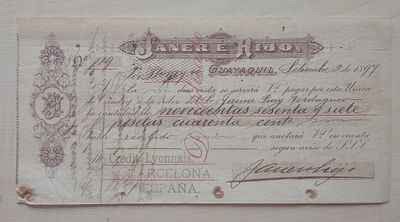 JANER É HIJO,
Nº 119
GUAYAQUIL, Setiembre 2 de 1897
días vista se servirá Vd. pagar por esta Unica
de Cambio á la orden del Sr. Jaime Puig Verdaguer
la cantidad de novecientas sesenta y siete
pesetas cuarenta cents
Valor recibido que anotará Vd. en cuenta
según aviso de S.S.S.
Crédit Lyonnais
BARCELONA
ESPAÑA.
Janer é Hijo